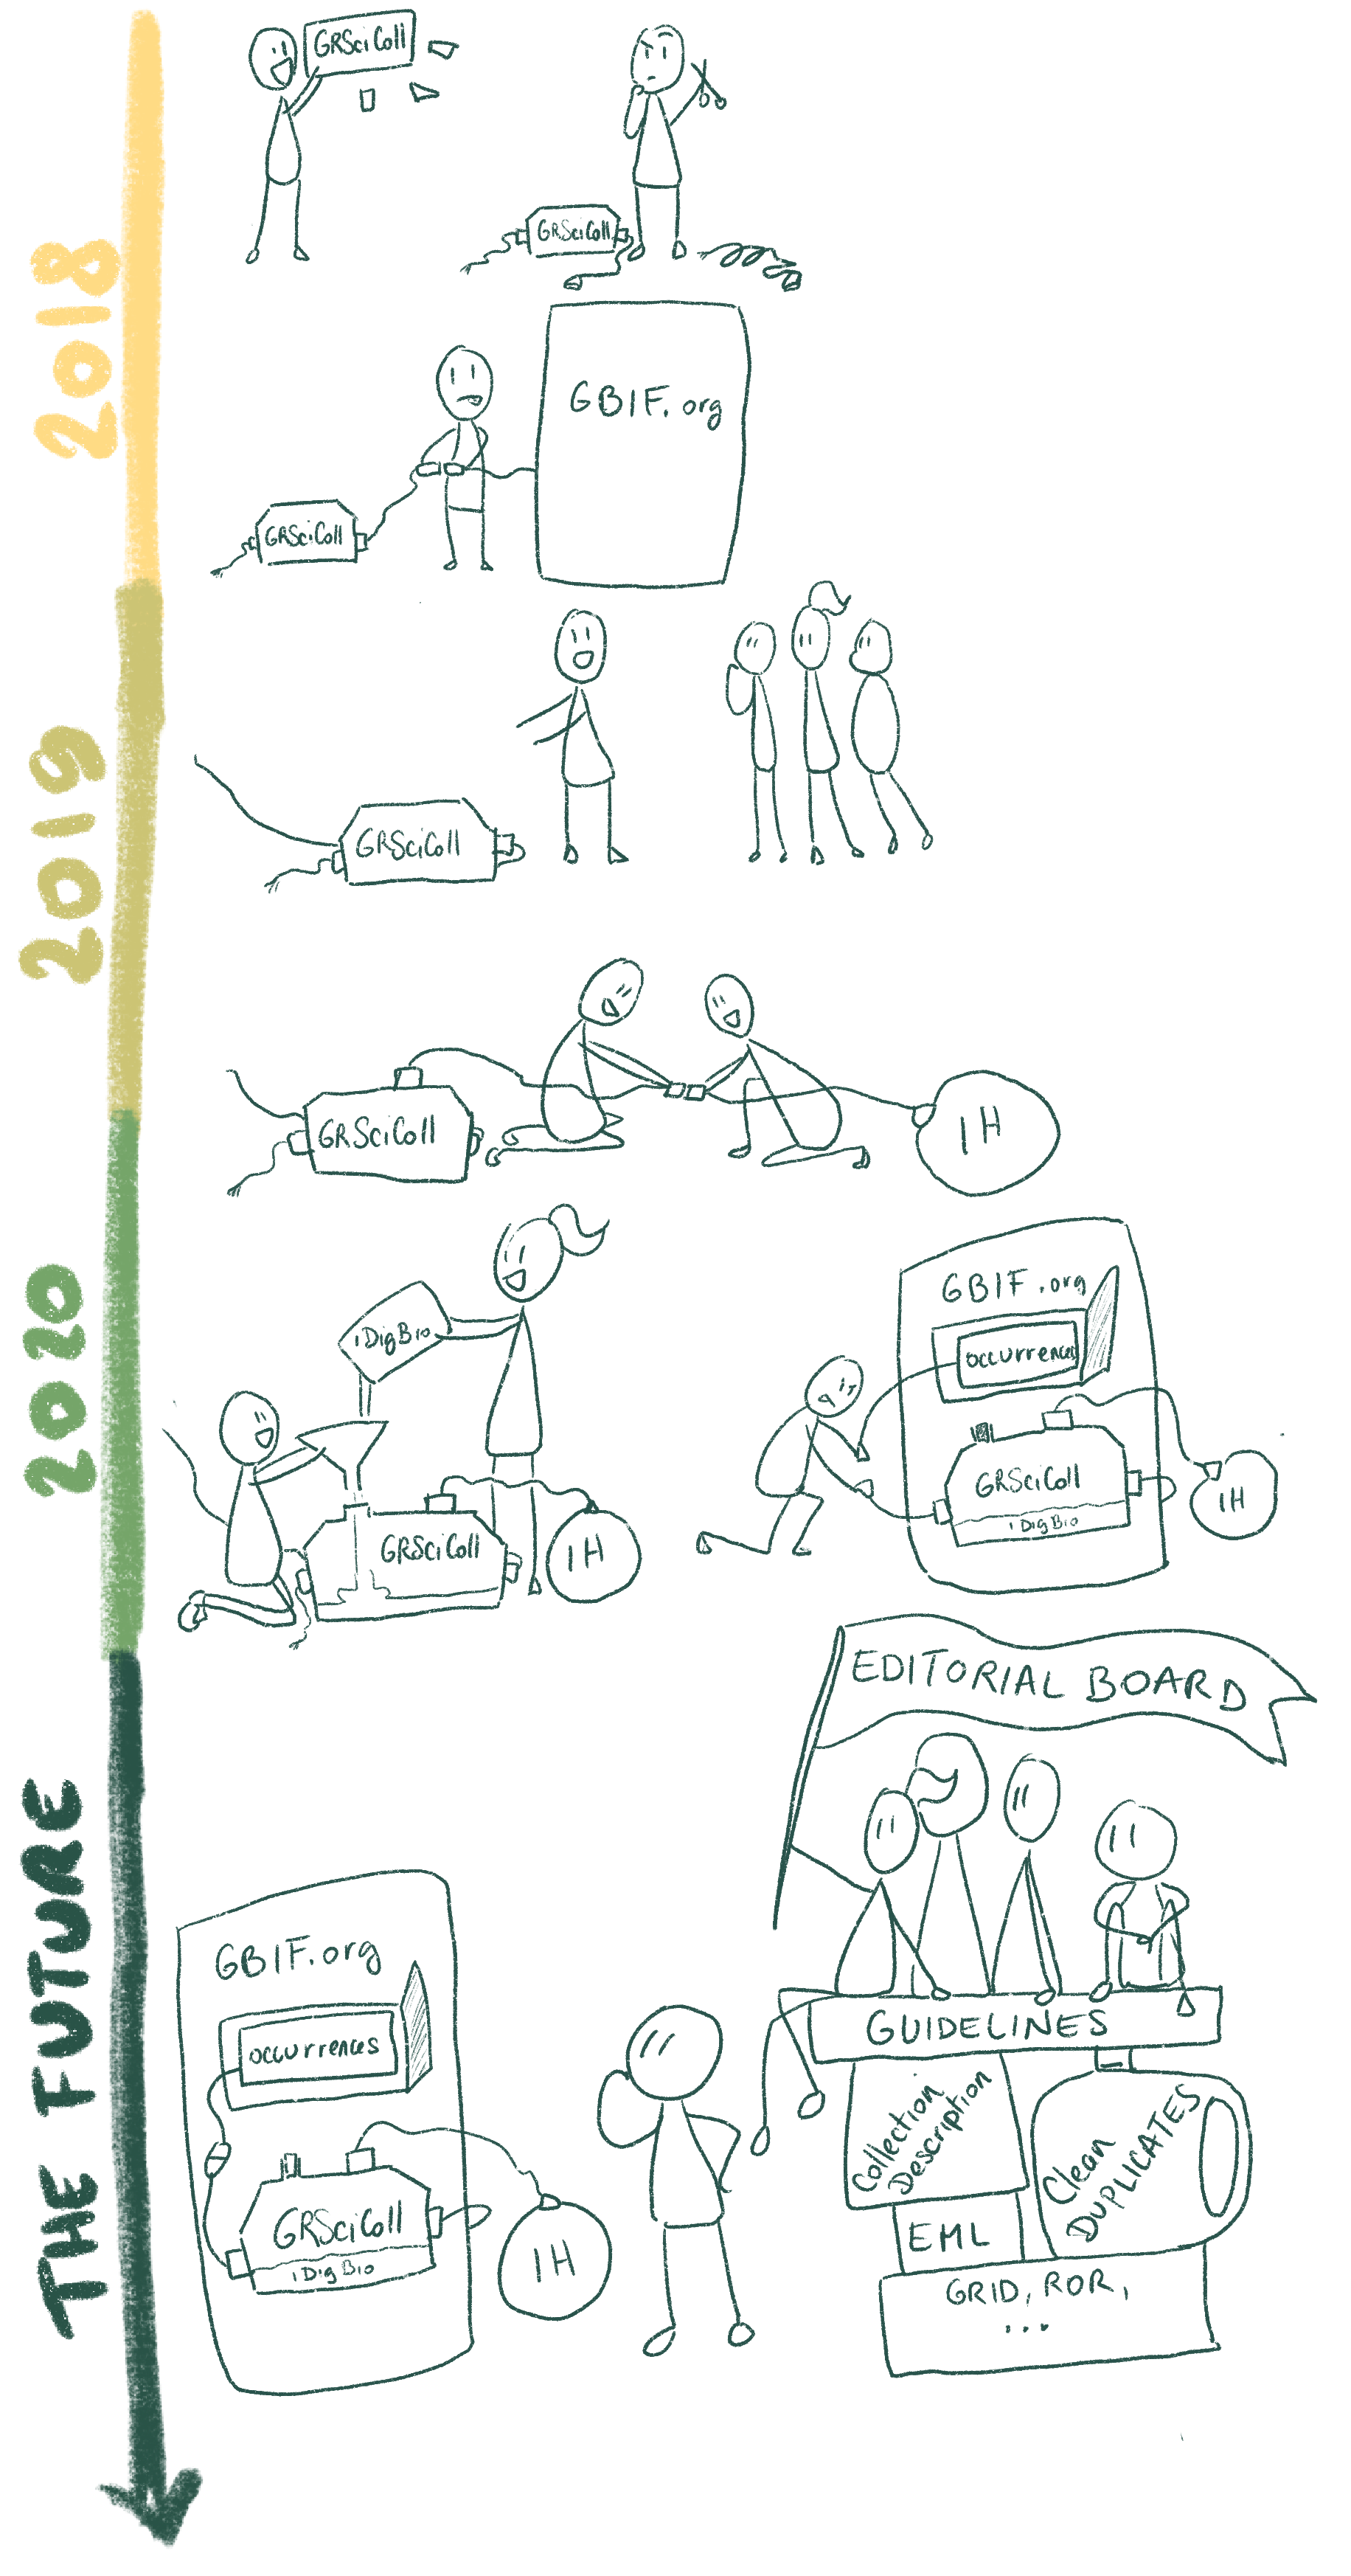 GRSciColl
GRSciColl
2018
GBIF.org
GRSciColl
2019
GRSciColl
GRSciColl
IH
2020
iDigBio
GRSciColl
IH
GBIF.org
occurrences
GRSciColl
iDigBio
IH
THE FUTURE
EDITORIAL BOARD
GBIF.org
occurrences
GRSciColl
iDigBio
IH
GUIDELINES
Collection
Description
Clean
DUPLICATES
EML
GRID, ROR,
...